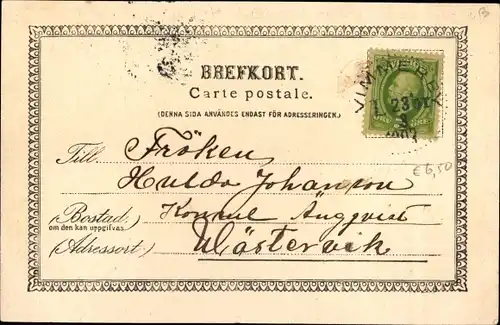 B
BREFKORT.
Carte postale.
(DENNA SIDA ANVÄNDES ENDAST FÖR ADRESSERINGEN.)
VIMMERBY
23
3
1903
€6,50
Till Fröken
Hulda Johanson
(Bostad: Konsul Ångqvist
om den kan uppgifvas.
(Adressort) Wästervik